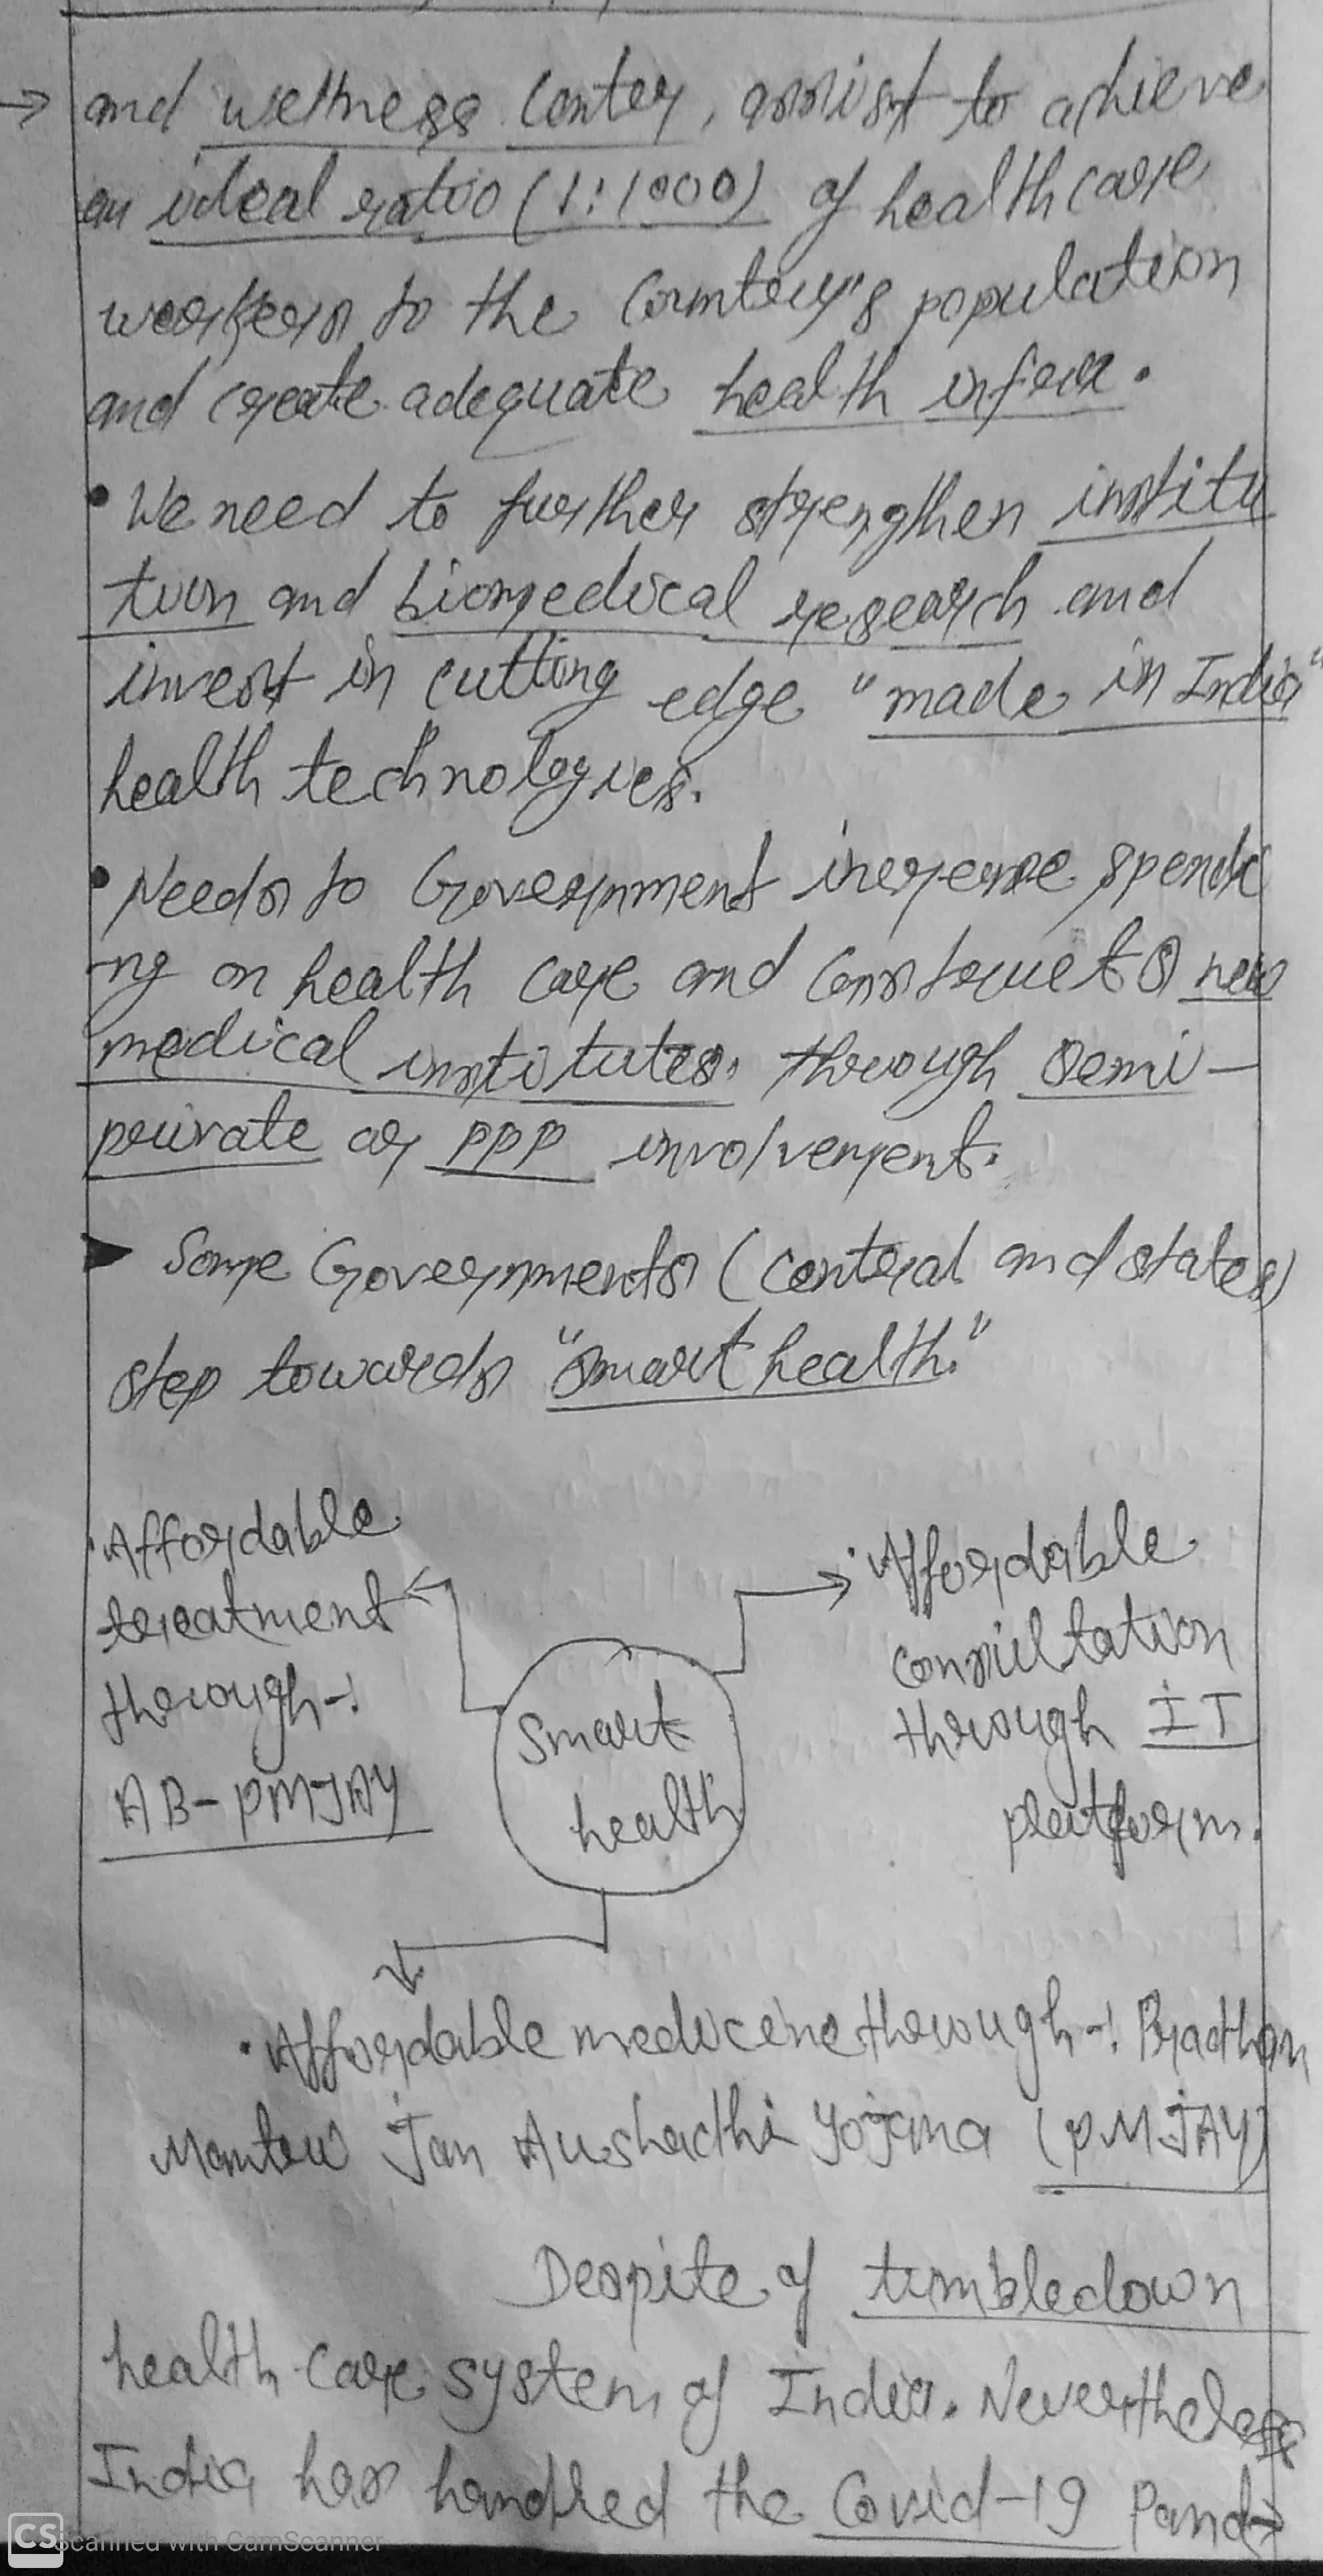 → and wellness Center, assist to achieve
an ideal ratio (1:1000) of healthcare
workers to the Country's population
and create adequate health infra.
• We need to further strengthen institu
tion and biomedical research and
invest in cutting edge "made in India"
health technologies.
• Needs to Government increase spendi
-ng on health care and constructs new
medical institutes. through semi-
private or PPP involvement.
► Some Governments (central and states)
step towards "smart health."
• Affordable
treatment
through-:
AB-PMJAY
Smart
health
• Affordable
consultation
through IT
platform.
• Affordable medicine through-: Pradhan
Mantri Jan Aushadhi Yojana (PMJAY)
Despite of tumbledown
health care system of India. Nevertheless
India has handled the Covid-19 Pand→
CS Scanned with CamScanner